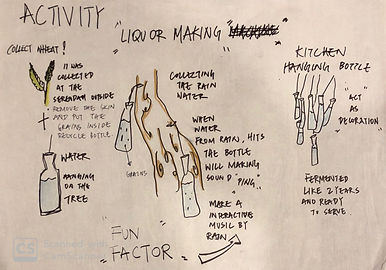 ACTIVITY
"LIQUOR MAKING"
COLLECT WHEAT!
IT WAS
COLLECTED
AT THE
SEREMBAN OUTSIDE
REMOVE THE SKIN
AND PUT THE
GRAINS INSIDE
RECYCLE BOTTLE
WATER
HANGING
ON THE
TREE
GRAINS
COLLECTING
THE RAIN
WATER
WHEN
WATER
FROM RAIN, HITS
THE BOTTLE
WILL MAKING
SOUND "PING"
MAKE A
INTERACTIVE
MUSIC BY
RAIN
"FUN
FACTOR"
KITCHEN
HANGING BOTTLE
"ACT
AS
DECORATION"
FERMENTED
LIKE 2 YEARS
AND READY
TO SERVE.
CS Scanned with
CamScanner